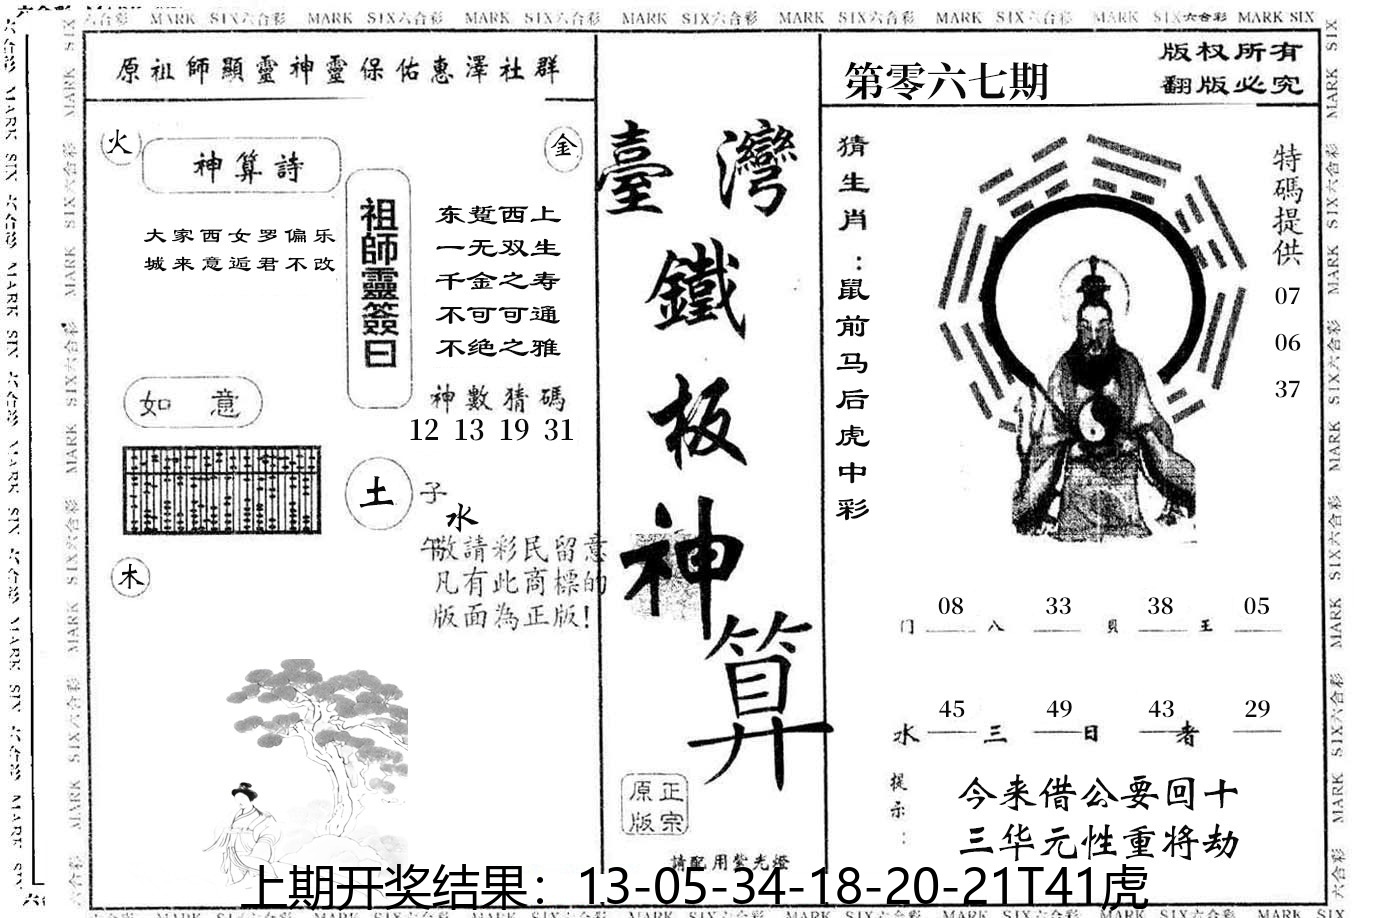 MARK SIX六合彩 MARK SIX六合彩 MARK SIX六合彩 MARK SIX六合彩 MARK SIX六合彩 MARK SIX六合彩 MARK SIX六合彩 MARK SIX
原祖師顯靈神靈保佑惠澤社群
火
神算詩
金
大家西女罗偏乐
城来意逅君不改
祖師靈簽曰
东踅西上
一无双生
千金之寿
不可可通
不绝之雅
神數猜碼
12 13 19 31
如 意
土
子
水
午
木
敬請彩民留意
凡有此商標的
版面為正版!
臺灣
鐵
板
神
算
正宗
原版
請配用紫光燈
第零六七期
版权所有
翻版必究
猜生肖:鼠前马后虎中彩
特碼提供
07
06
37
08 33 38 05
门 八 貝 王
45 49 43 29
水 三 日 者
提示:
今来借公要回十
三华元性重将劫
上期开奖结果：13-05-34-18-20-21T41虎